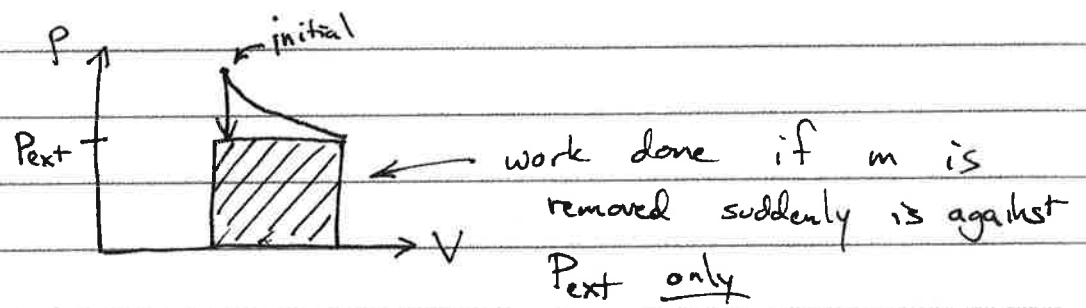 P
initial
Pext
work done if m is
removed suddenly is against
Pext only
V